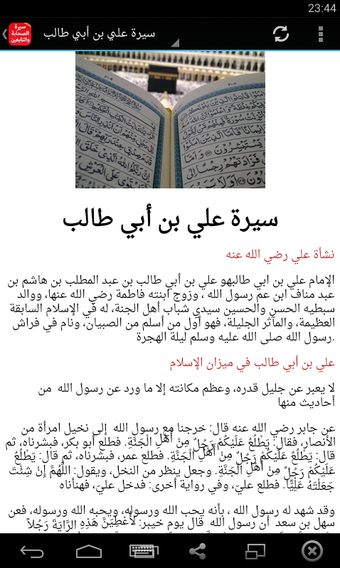 23:44
سيرة علي بن أبي طالب
سيرة
الصحابة
والتابعين
سيرة علي بن أبي طالب
نشأة علي رضي الله عنه
الإمام علي بن ابي طالبهو علي بن أبي طالب بن عبد المطلب بن هاشم بن
عبد مناف ابن عم رسول الله ، وزوج ابنته فاطمة رضي الله عنها، ووالد
سبطيه الحسن والحسين سيدي شباب أهل الجنة، له في الإسلام السابقة
العظيمة، والمآثر الجليلة، فهو أول من أسلم من الصبيان، ونام في فراش
رسول الله صلى الله عليه وسلم ليلة الهجرة.
علي بن أبي طالب في ميزان الإسلام
لا يعبر عن جليل قدره، وعظم مكانته إلا ما ورد عن رسول الله من
أحاديث منها
عن جابر رضي الله عنه قال: خرجنا مع رسول الله إلى نخيل امرأة من
الأنصار، فقال: يَطْلُعُ عَلَيْكُمْ رَجُلٌ مِنْ أَهْلِ الْجَنَّةِ. فطلع أبو بكر، فبشرناه، ثم
قال: يَطْلُعُ عَلَيْكُمْ رَجُلٌ مِنْ أَهْلِ الْجَنَّةِ. فطلع عمر، فبشرناه، ثم قال: يَطْلُعُ
عَلَيْكُمْ رَجُلٌ مِنْ أَهْلِ الْجَنَّةِ. وجعل ينظر من النخل، ويقول: اللَّهُمَّ إِنْ شِئْتَ
جَعَلْتَهُ عَلِيًّا. فطلع عليّ، وفي رواية أخرى: فدخل عليّ، فهنأناه
وقد شهد له رسول الله ، بأنه يحب الله ورسوله، ويحبه الله ورسوله، فعن
سهل بن سعد أن رسول الله قال يوم خيبر: لَأُعْطِيَنَّ هَذِهِ الرَّايَةَ رَجُلًا